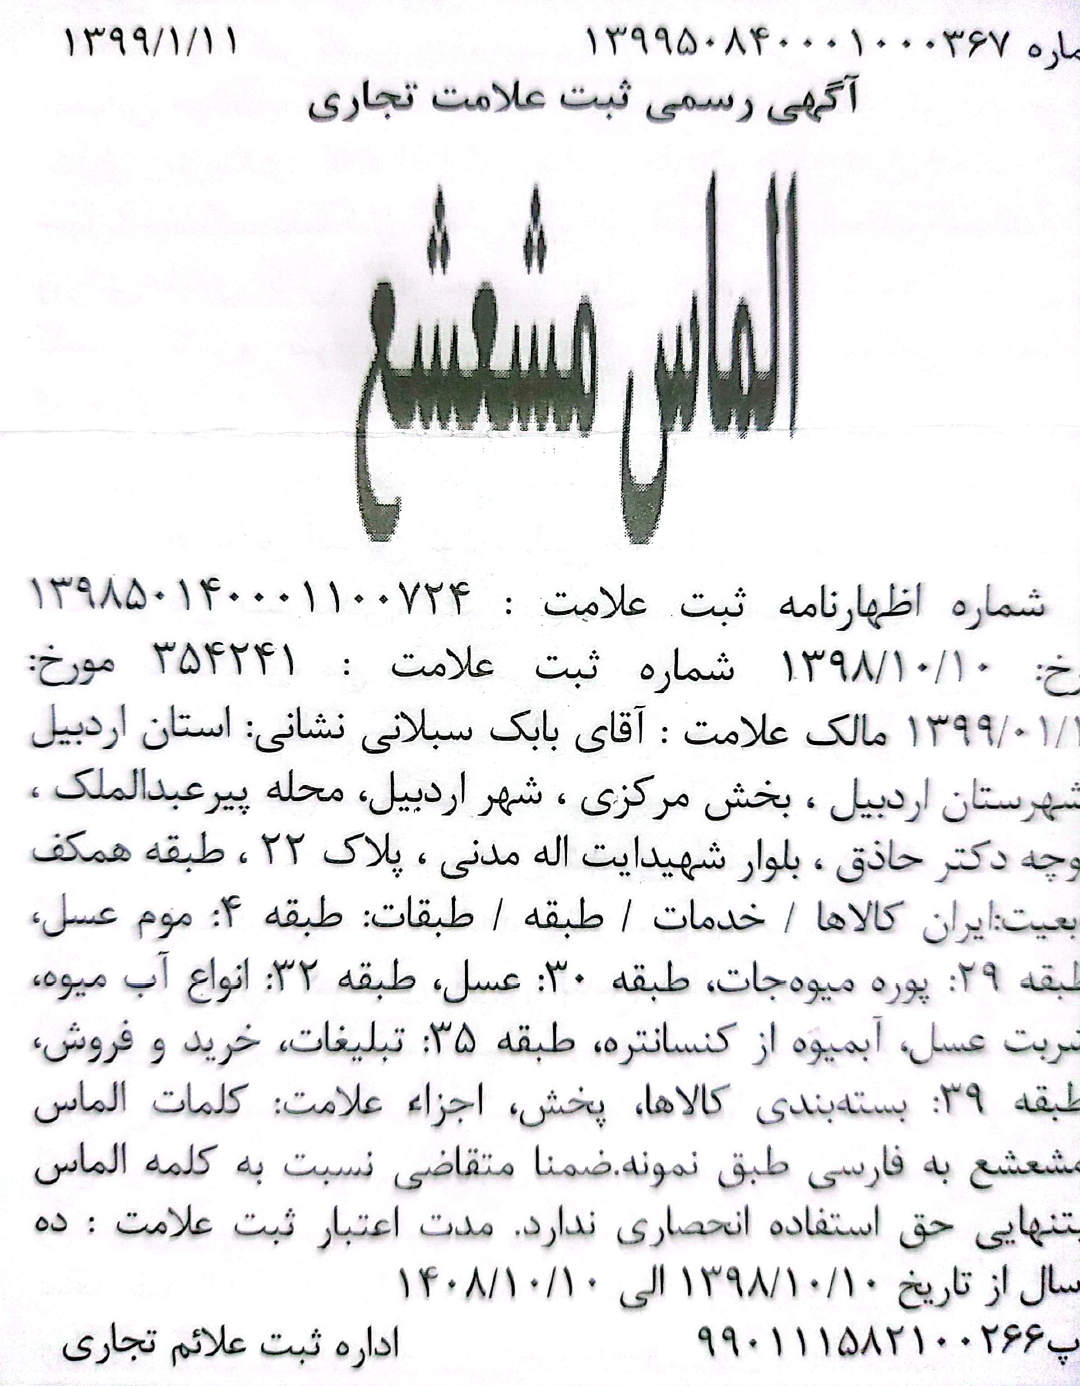 ماره ۱۳۹۹۵۰۸۴۰۰۰۱۰۰۰۳۶۷ ۱۳۹۹/۱/۱۱
آگهی رسمی ثبت علامت تجاری
الماس مشعشع
شماره اظهارنامه ثبت علامت : ۱۳۹۸۵۰۱۴۰۰۰۱۱۰۰۷۲۴
رخ: ۱۳۹۸/۱۰/۱۰ شماره ثبت علامت : ۳۵۴۲۴۱ مورخ:
۱۳۹۹/۰۱/۱ مالک علامت : آقای بابک سبلانی نشانی: استان اردبیل
شهرستان اردبیل ، بخش مرکزی ، شهر اردبیل، محله پیرعبدالملک ،
وچه دکتر حاذق ، بلوار شهیدایت اله مدنی ، پلاک ۲۲ ، طبقه همکف
بعیت:ایران کالاها / خدمات / طبقه / طبقات: طبقه ۴: موم عسل،
طبقه ۲۹: پوره میوه‌جات، طبقه ۳۰: عسل، طبقه ۳۲: انواع آب میوه،
شربت عسل، آبمیوه از کنسانتره، طبقه ۳۵: تبلیغات، خرید و فروش،
طبقه ۳۹: بسته‌بندی کالاها، پخش، اجزاء علامت: کلمات الماس
مشعشع به فارسی طبق نمونه.ضمنا متقاضی نسبت به کلمه الماس
بتنهایی حق استفاده انحصاری ندارد. مدت اعتبار ثبت علامت : ده
سال از تاریخ ۱۳۹۸/۱۰/۱۰ الی ۱۴۰۸/۱۰/۱۰
پ۹۹۰۱۱۱۵۸۲۱۰۰۲۶۶ اداره ثبت علائم تجاری